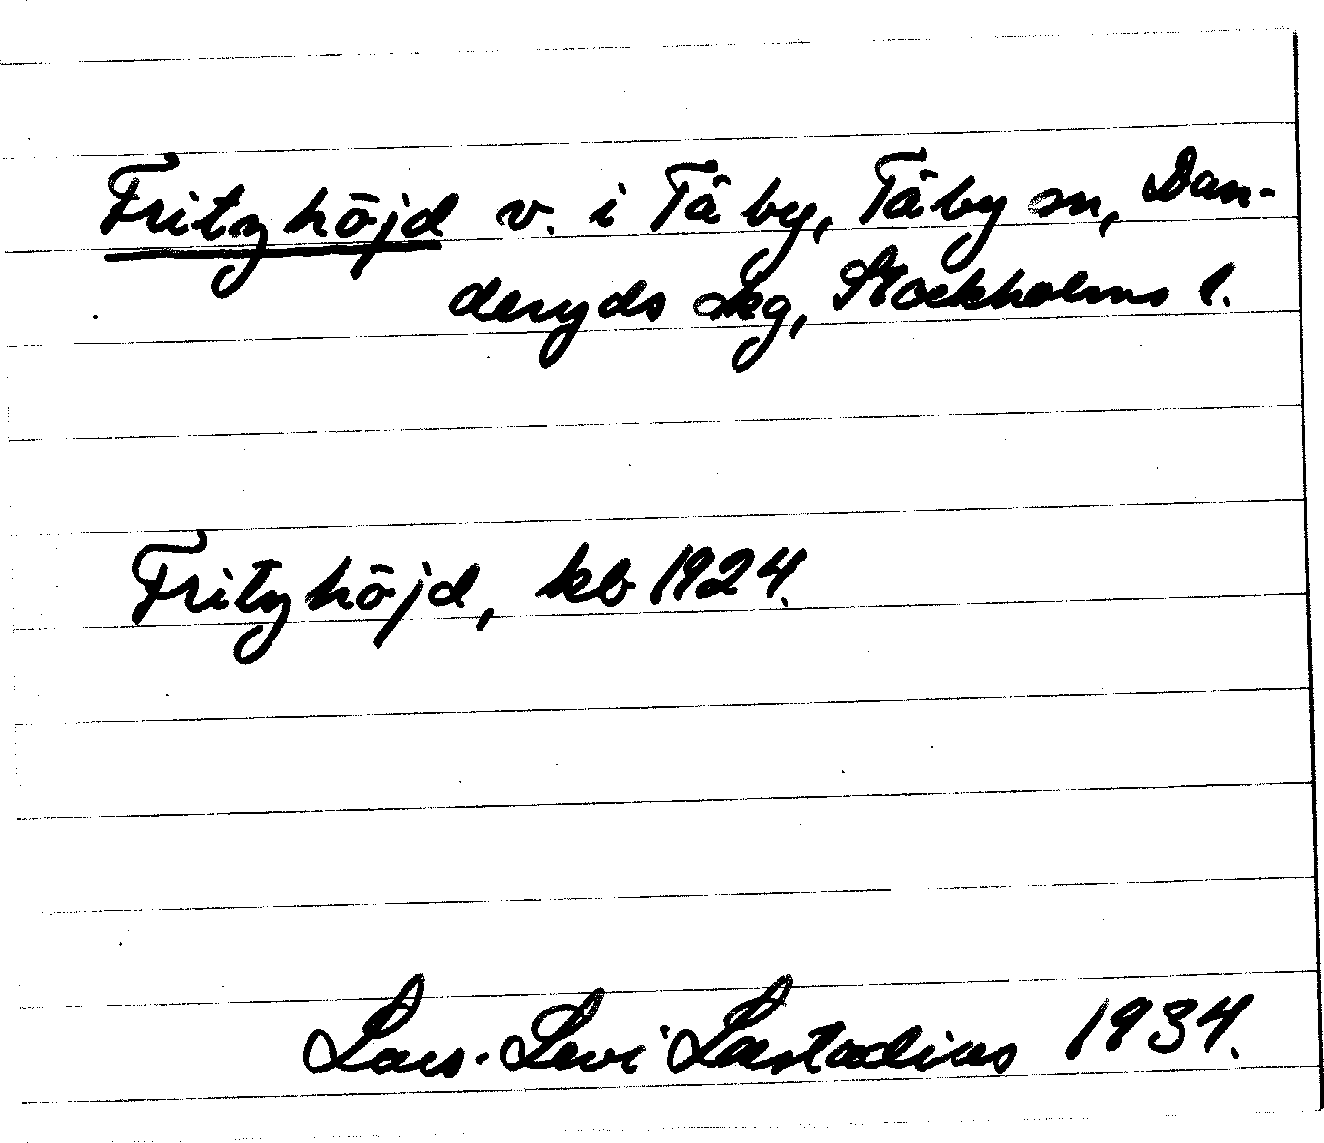 Fritzhöjd v. i Täby, Täby sn, Dan-
deryds skg, Stockholms l.
Fritzhöjd, kb 1924.
Lars-Levi Læstadius 1934.